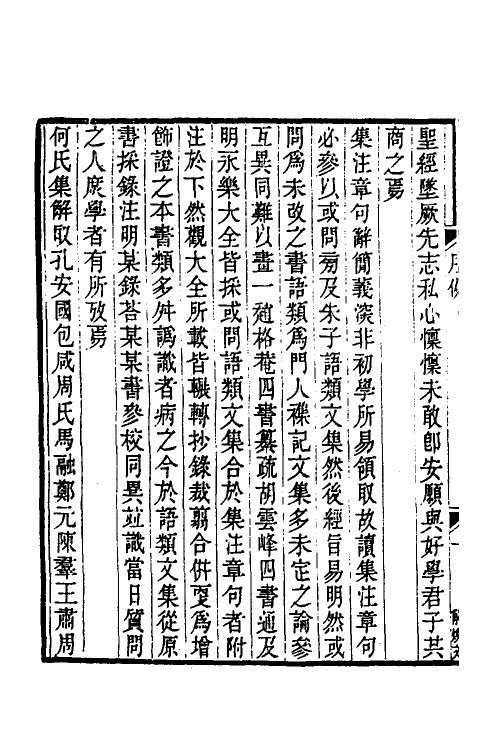 聖經墜厥先志私心懍懍未敢卽安願與好學君子共
商之焉
集注章句辭簡義深非初學所易領取故讀集注章句
必參以或問旁及朱子語類文集然後經旨易明然或
問爲未改之書語類爲門人襍記文集多未定之論參
互異同難以畫一趙格菴四書纂疏胡雲峰四書通及
明永樂大全皆採或問語類文集合於集注章句者附
注於下然觀大全所載皆輾轉抄錄裁翦合併更爲增
飾證之本書類多舛譌識者病之今於語類文集從原
書採錄注明某錄荅某某書參校同異並識當日質問
之人庶學者有所攷焉
何氏集解取孔安國包咸周氏馬融鄭元陳羣王肅周